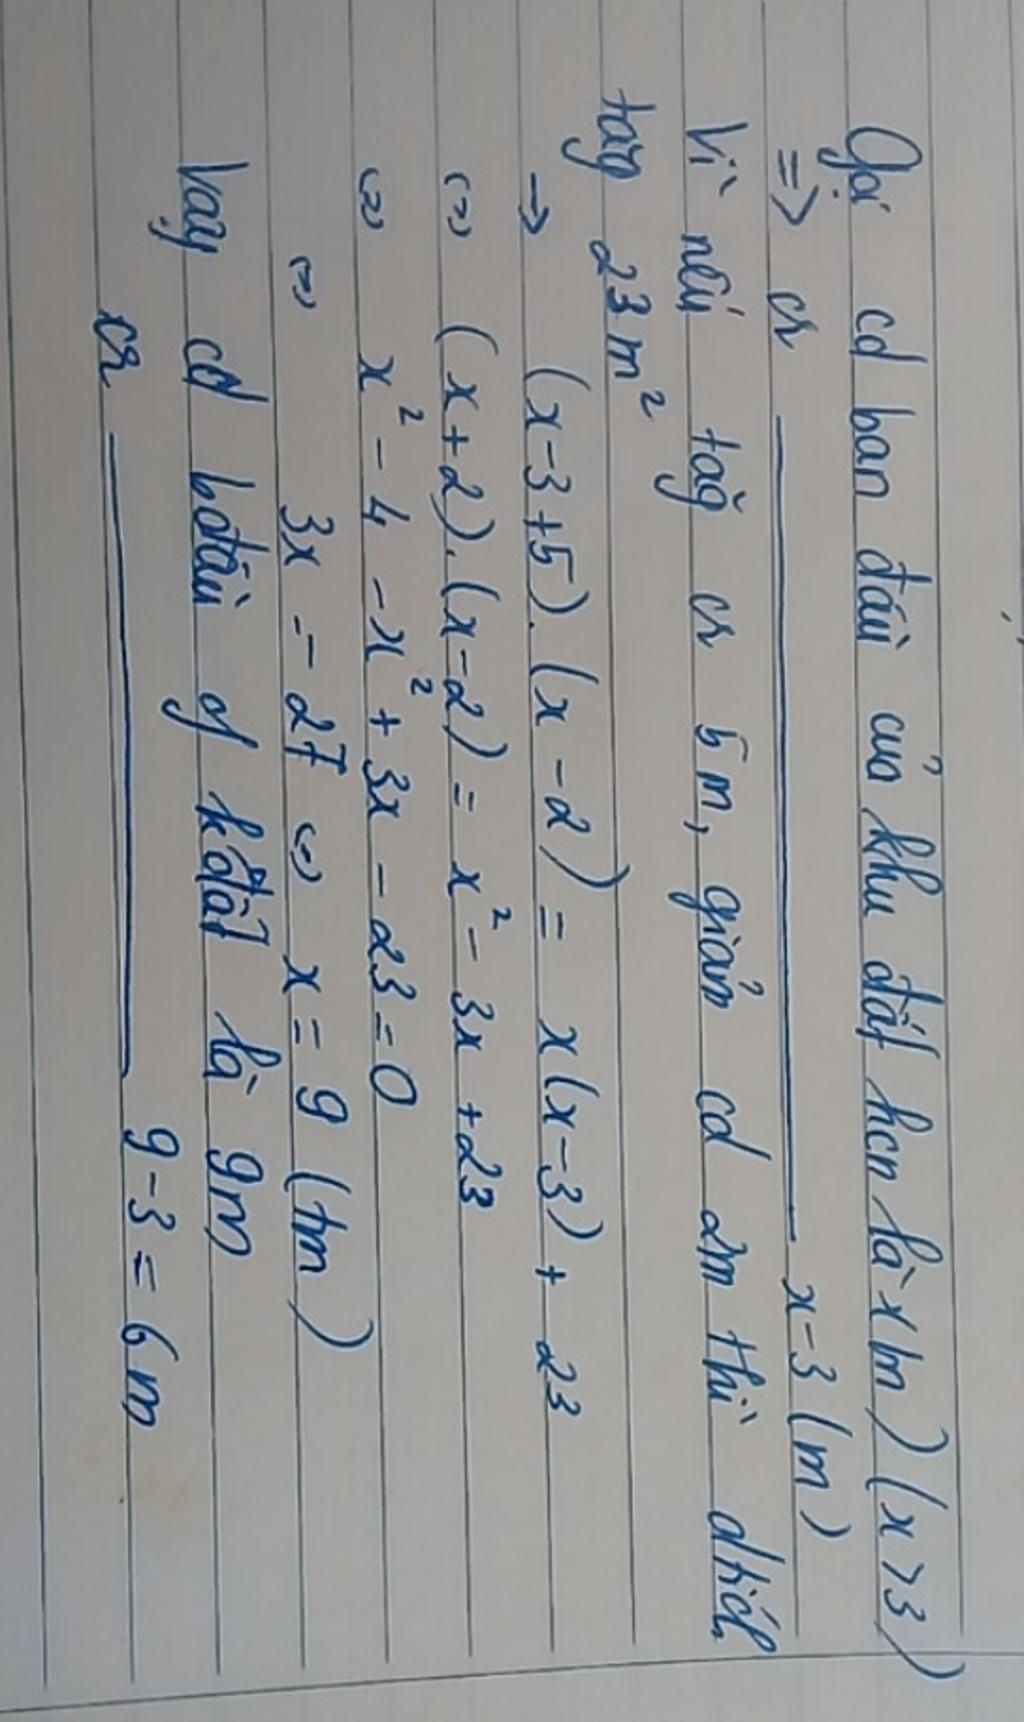 Gọi cd ban đầu của khu đất hcn là x (m) (x > 3)
=> cr ________ x - 3 (m)
Vì nếu tăg cr 5m, giảm cd 2m thì dtích
tăg 23 m²
→ (x - 3 + 5). (x - 2) = x(x - 3) + 23
(=) (x + 2). (x - 2) = x² - 3x + 23
(=) x² - 4 - x² + 3x - 23 = 0
(=) 3x = 27 (=) x = 9 (tm)
Vậy cd bđầu of kđất là 9m
cr ________ 9 - 3 = 6m